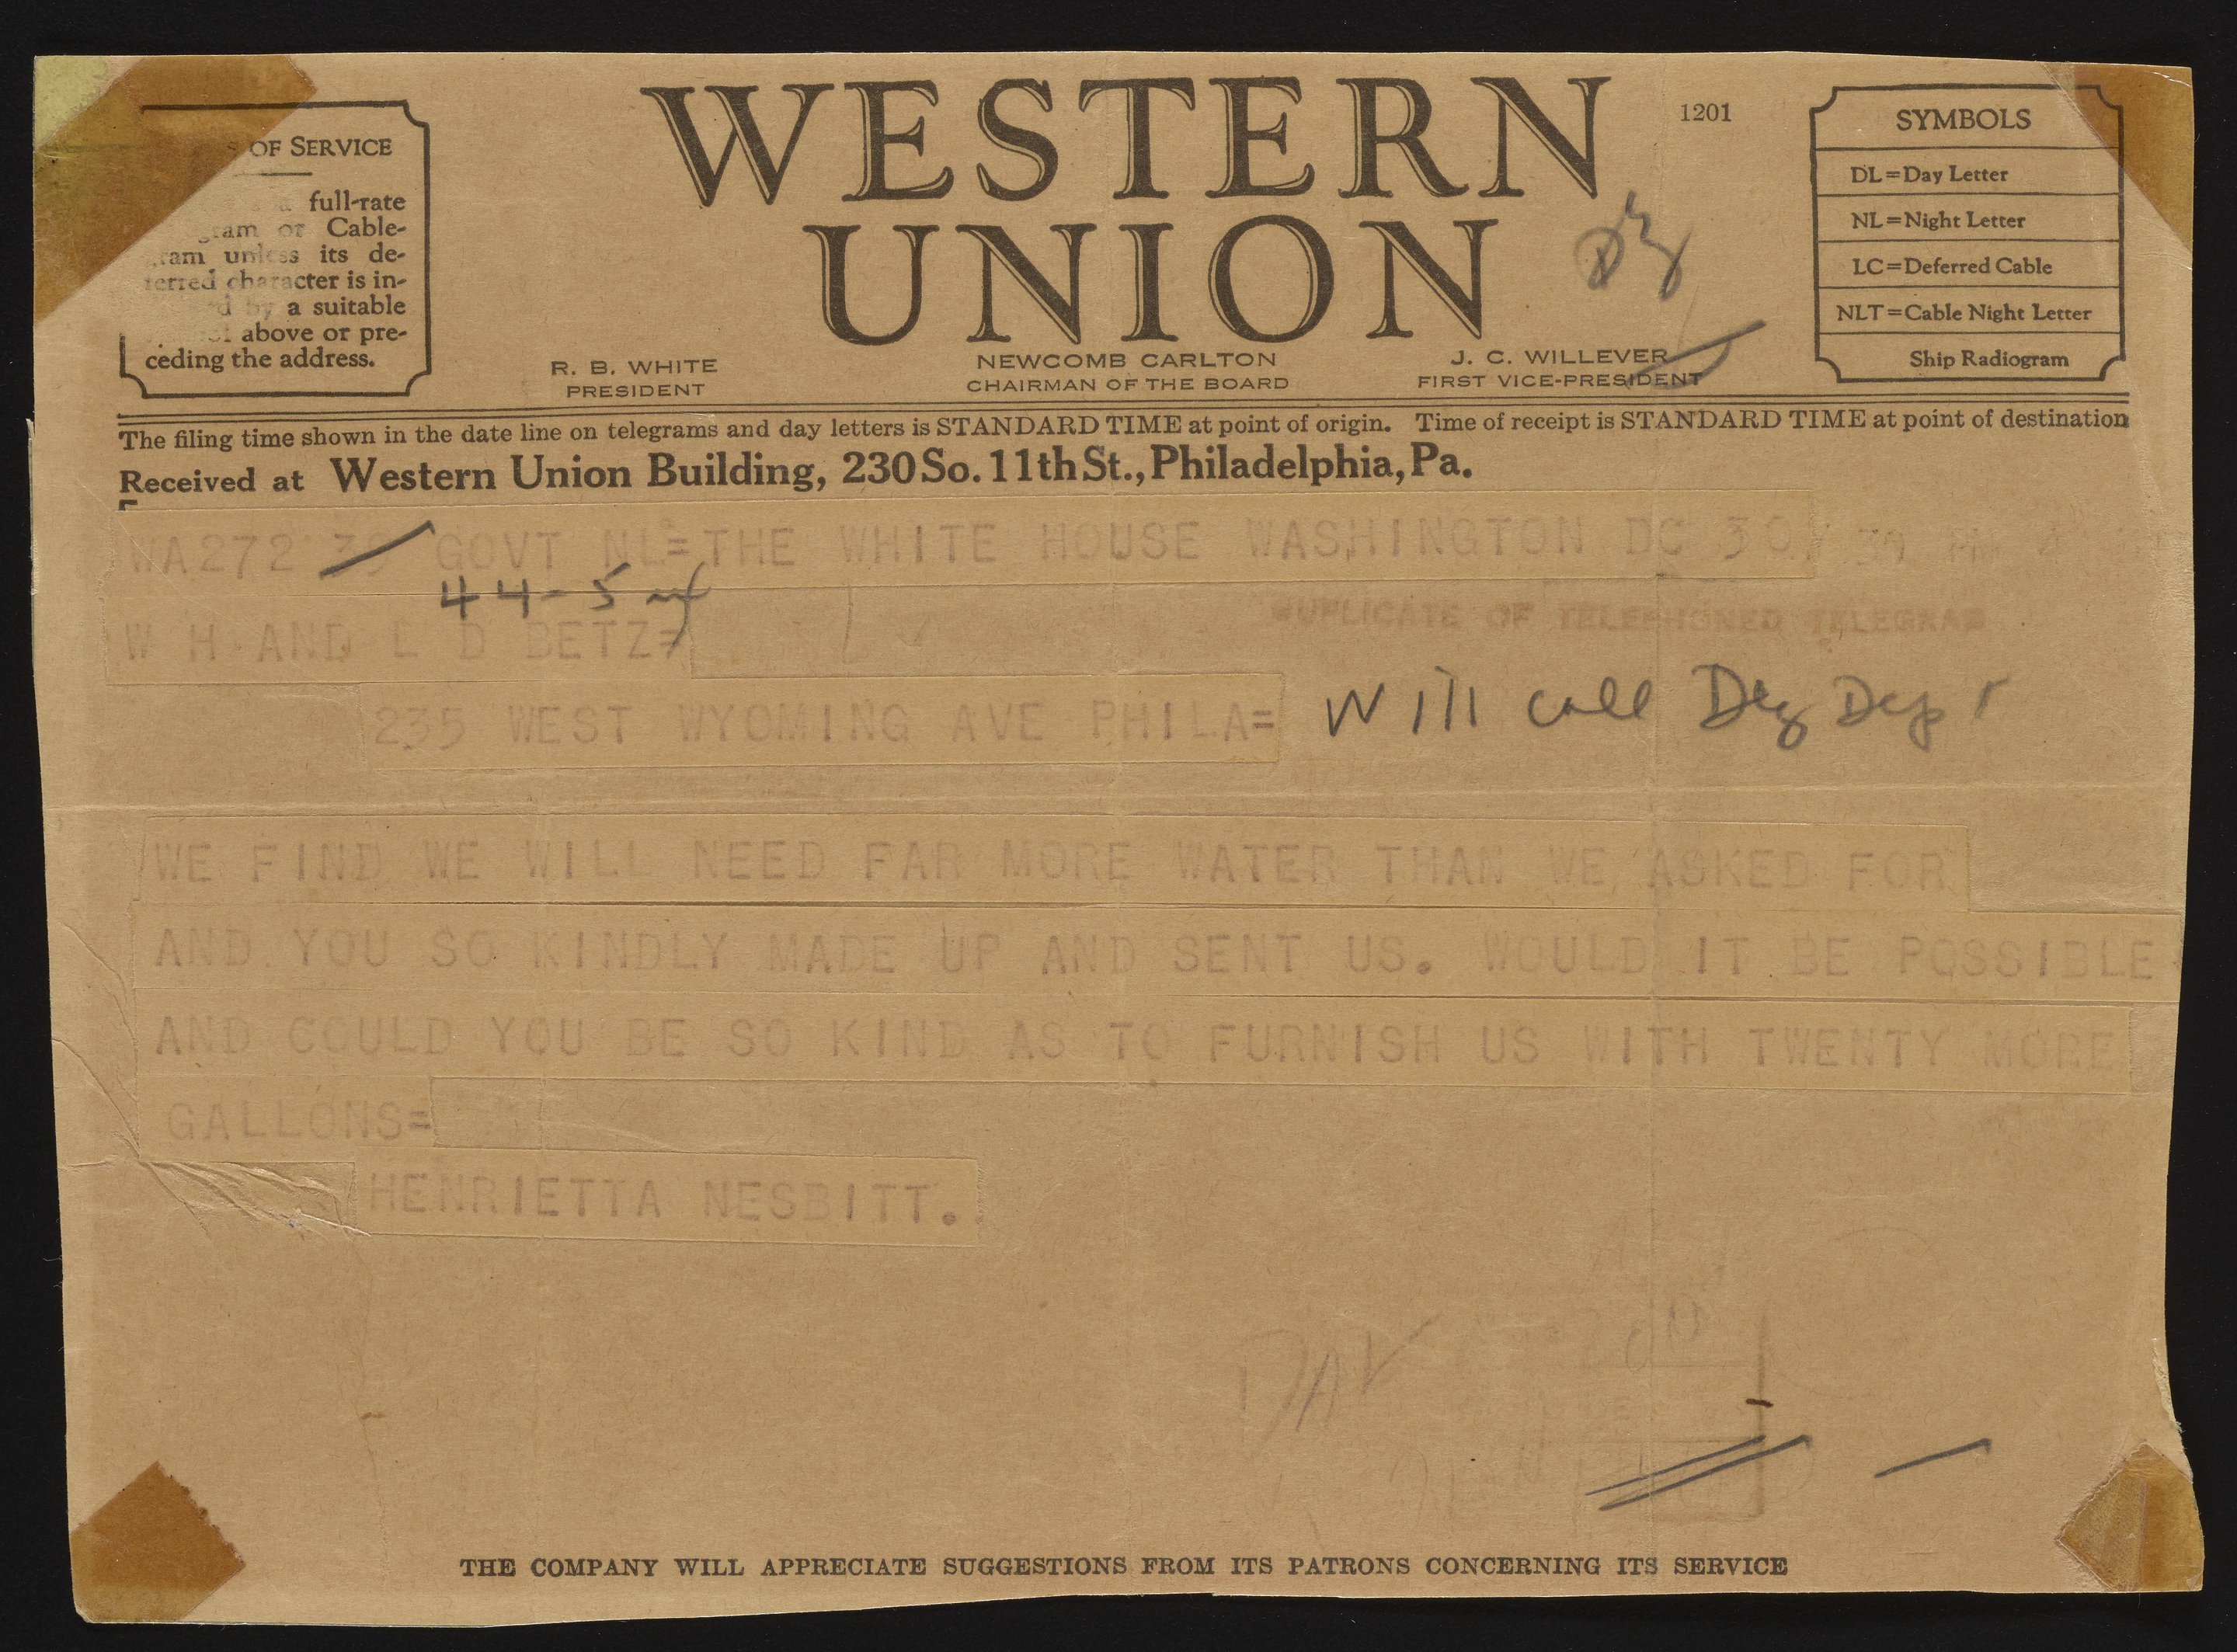 WESTERN
UNION
1201
OF SERVICE
full-rate
or Cable-
unless its de-
ferred character is in-
by a suitable
above or pre-
ceding the address.
SYMBOLS
DL=Day Letter
NL=Night Letter
LC=Deferred Cable
NLT=Cable Night Letter
Ship Radiogram
R. B. WHITE
PRESIDENT
NEWCOMB CARLTON
CHAIRMAN OF THE BOARD
J. C. WILLEVER
FIRST VICE-PRESIDENT
The filing time shown in the date line on telegrams and day letters is STANDARD TIME at point of origin. Time of receipt is STANDARD TIME at point of destination
Received at Western Union Building, 230 So. 11th St., Philadelphia, Pa.
WA272 39 GOVT NL=THE WHITE HOUSE WASHINGTON DC 30
44-5
DUPLICATE OF TELEPHONED TELEGRAM
W H AND L D BETZ=
235 WEST WYOMING AVE PHILA=
Will call
WE FIND WE WILL NEED FAR MORE WATER THAN WE ASKED FOR
AND YOU SO KINDLY MADE UP AND SENT US. WOULD IT BE POSSIBLE
AND COULD YOU BE SO KIND AS TO FURNISH US WITH TWENTY MORE
GALLONS=
HENRIETTA NESBITT.
THE COMPANY WILL APPRECIATE SUGGESTIONS FROM ITS PATRONS CONCERNING ITS SERVICE